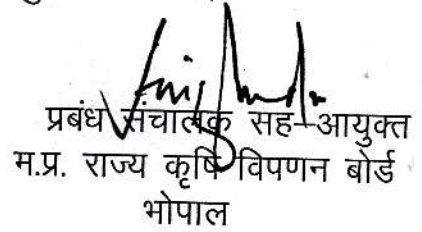 प्रबंध संचालक सह-आयुक्त
म.प्र. राज्य कृषि विपणन बोर्ड
भोपाल